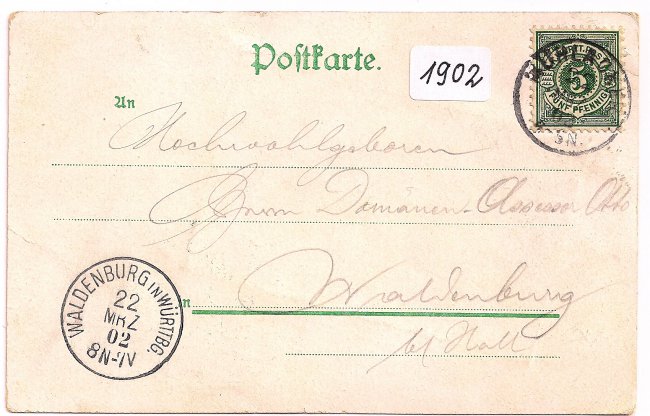 Postkarte.
1902
5
FÜNF PFENNIG
An
Hochwohlgeboren
Herrn Domänen-Assessor Otto
in
Waldenburg
bei Hall
WALDENBURG IN WÜRTTBG.
22
MRZ
02
8N-IV